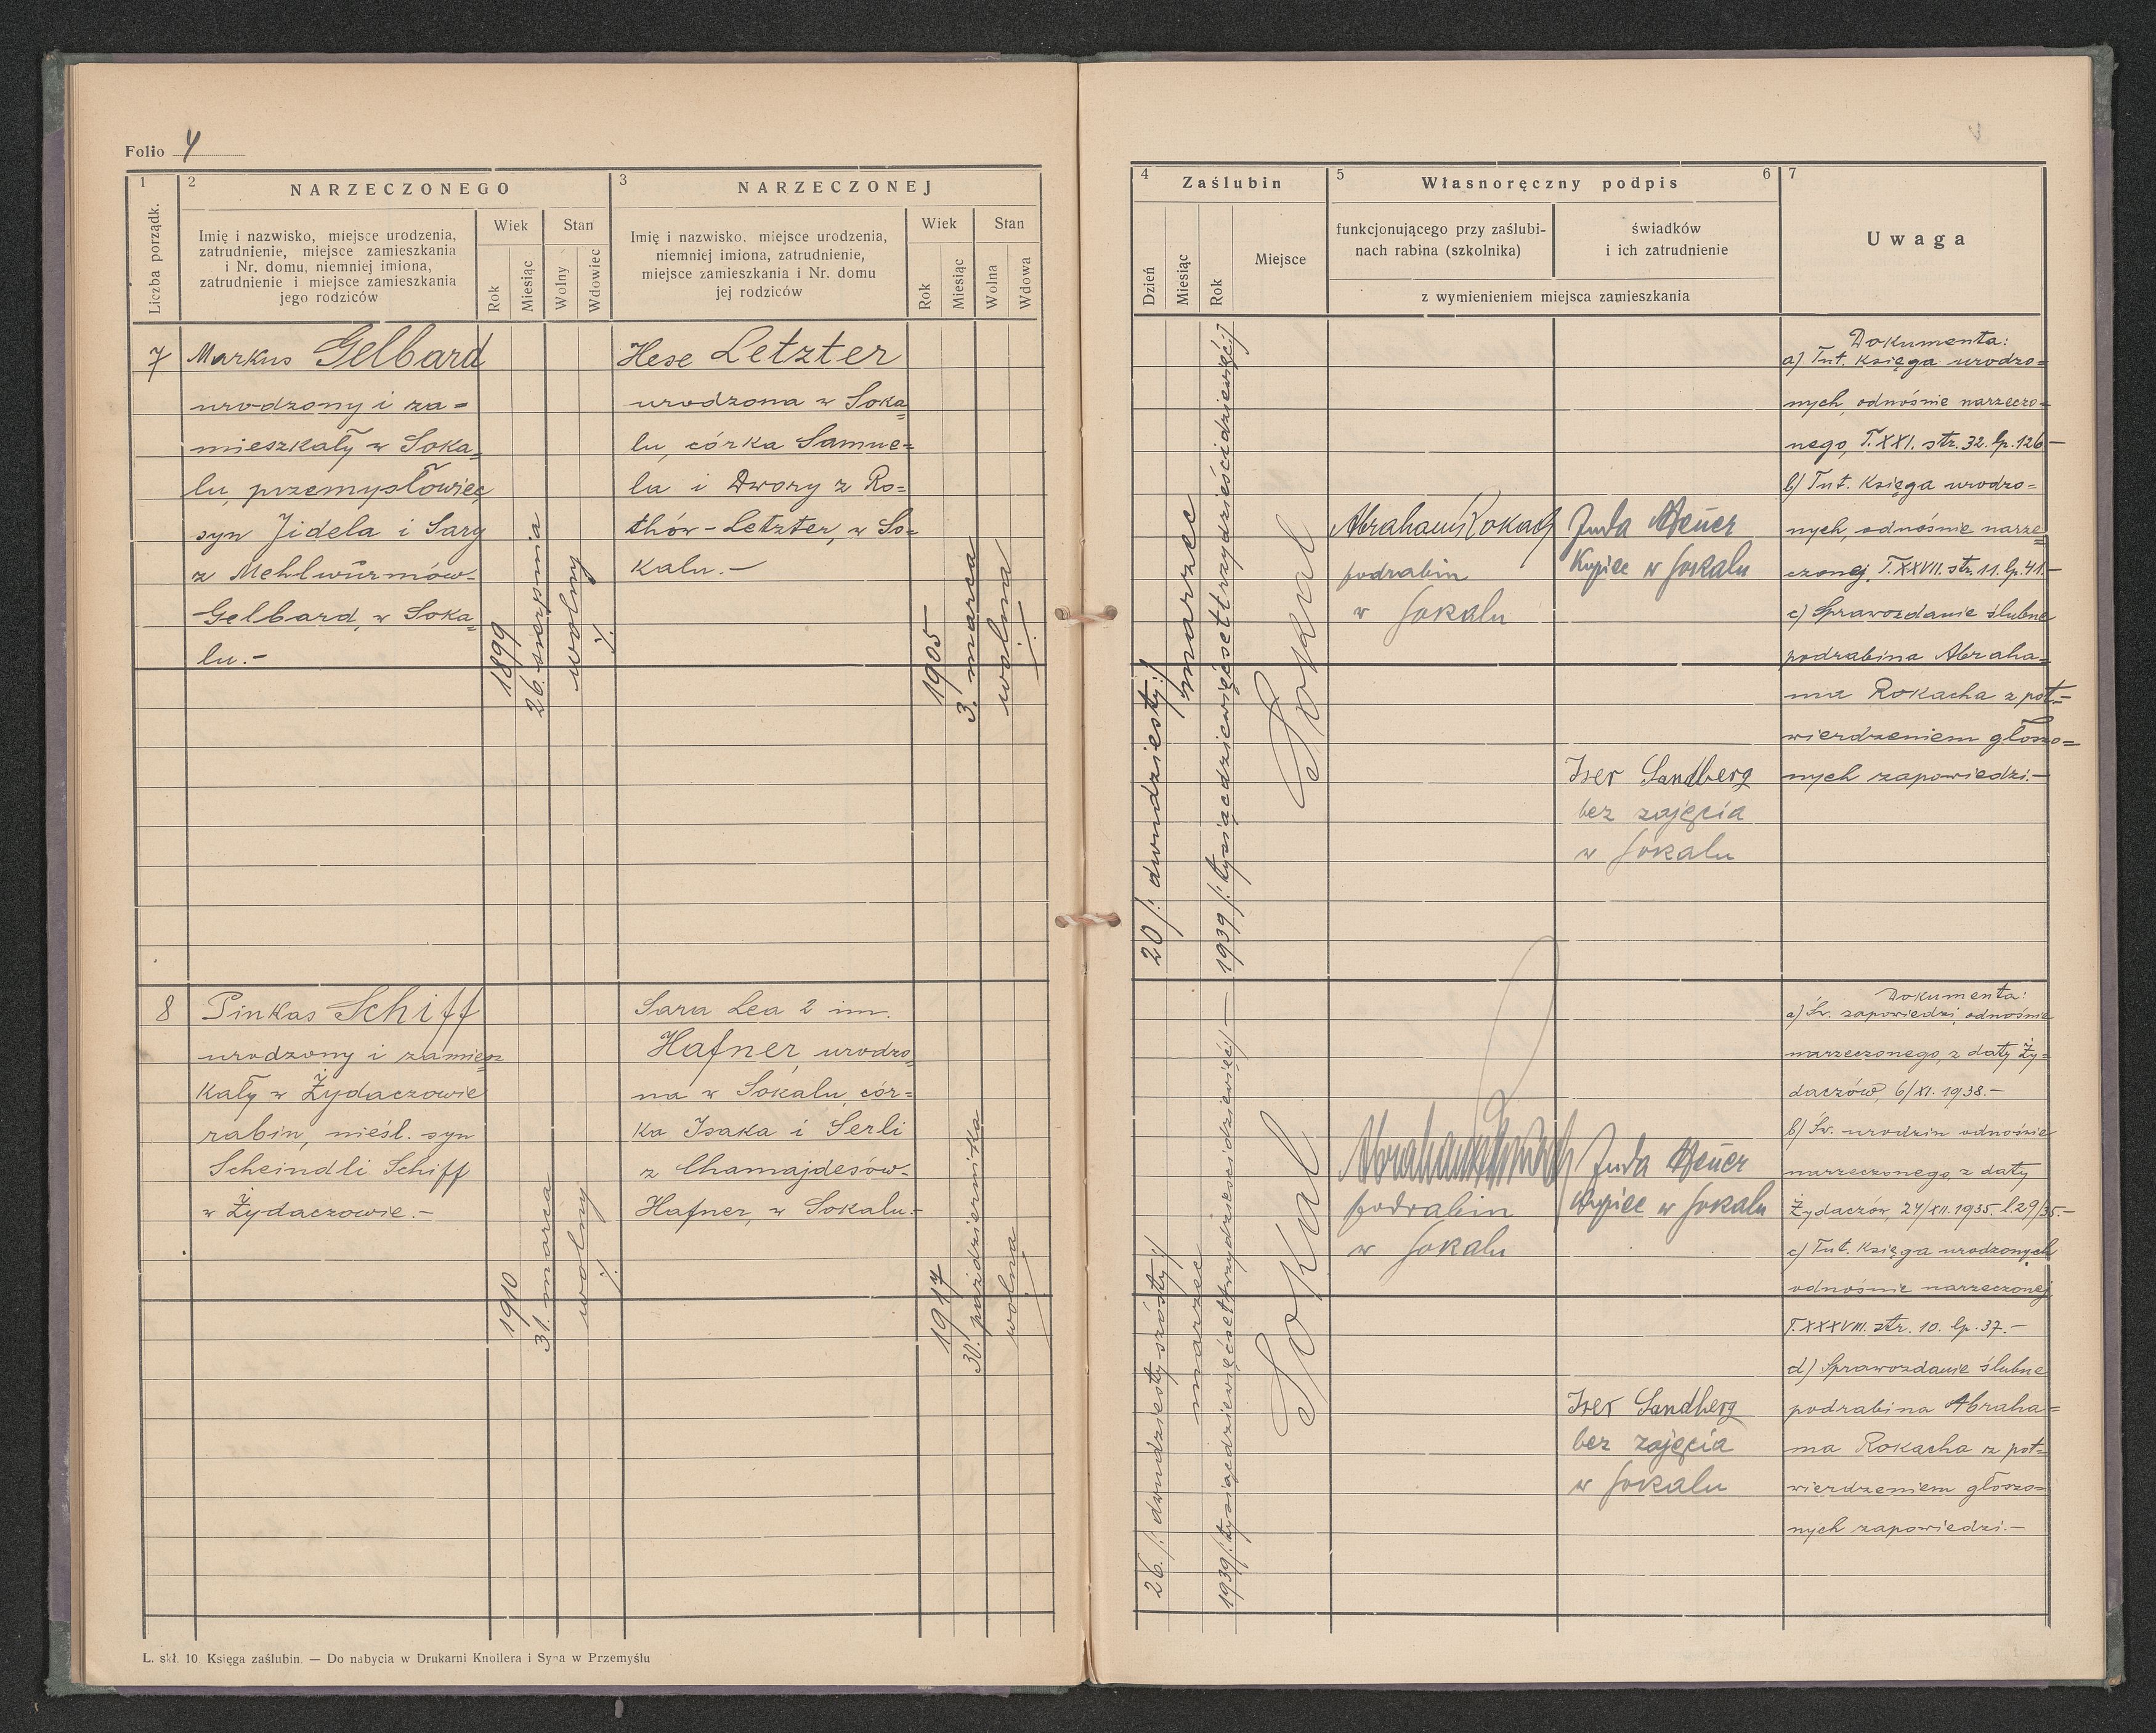 Folio 4
1
2
NARZECZONEGO
3
NARZECZONEJ
Liczba porządk.
Imię i nazwisko, miejsce urodzenia,
zatrudnienie, miejsce zamieszkania
i Nr. domu, niemniej imiona,
zatrudnienie i miejsce zamieszkania
jego rodziców
Wiek
Stan
Rok
Miesiąc
Wolny
Wdowiec
Imię i nazwisko, miejsce urodzenia,
niemniej imiona, zatrudnienie,
miejsce zamieszkania i Nr. domu
jej rodziców
Wiek
Stan
Rok
Miesiąc
Wolna
Wdowa
7
Markus Gelbard
urodzony i za=
mieszkały w Soka=
lu, przemysłowiec
syn Jidela i Sary
z Mehlwürmów-
Gelbard, w Soka=
lu.-
1899
26. sierpnia
wolny
./.
Hese Letzter
urodzona w Soka=
lu, córka Samue=
la i Dwory z Ro=
thów-Letzter, w So=
kalu.-
1905
3. marca
wolna
./.
8
Pinkas Schiff
urodzony i zamiesz=
kały w Żydaczowie
rabin, nieśl. syn
Scheindli Schiff
w Żydaczowie.-
1910
31. marca
wolny
./.
Sara Lea 2 im.
Hafner, urodzo=
na w Sokalu, cór=
ka Isaka i Serli
z Chamajdesów-
Hafner, w Sokalu.-
1917
30. października
wolna
L. skł. 10. Księga zaślubin. — Do nabycia w Drukarni Knollera i Syna w Przemyślu
4
Zaślubin
5
Własnoręczny podpis
6
7
Dzień
Miesiąc
Rok
Miejsce
funkcjonującego przy zaślubi-
nach rabina (szkolnika)
świadków
i ich zatrudnienie
z wymienieniem miejsca zamieszkania
Uwaga
20 /: dwudziesty :/
marzec
1939 /: tysiącdziewięćsettrzydzieścidziewięć :/
Sokal
Abraham Rokach
podrabin
w Sokalu
Juda Heuer
Kupiec w Sokalu
Iser Sandberg
bez zajęcia
w Sokalu
Dokumenta:
a) Tut. Księga urodzo=
nych, odnośnie narzeczo=
nego, T. XXI. str. 32. lp. 126-
b) Tut. Księga urodzo=
nych, odnośnie narze=
czonej, T. XXVII. str. 11. lp. 41.-
c) Sprawozdanie ślubne
podrabina Abraha=
ma Rokacha z pot=
wierdzeniem głoszo=
nych zapowiedzi.-
26. /: dwudziesty szósty :/
marzec
1939 /: tysiącdziewięćsettrzydzieścidziewięć :/ —
Sokal
Abraham Rokach
podrabin
w Sokalu
Juda Heuer
Kupiec w Sokalu
Iser Sandberg
bez zajęcia
w Sokalu
Dokumenta:
a) Św. zapowiedzi, odnośnie
narzeczonego, z daty Ży=
daczów, 6/XI. 1938.-
b) Św. urodzin odnośnie
narzeczonego, z daty
Żydaczów, 24/XII. 1935. l. 29/35.-
c) Tut. Księga urodzonych
odnośnie narzeczonej
T. XXXVIII. str. 10. lp. 37.-
d) Sprawozdanie ślubne
podrabina Abraha=
ma Rokacha z pot=
wierdzeniem głoszo=
nych zapowiedzi.-